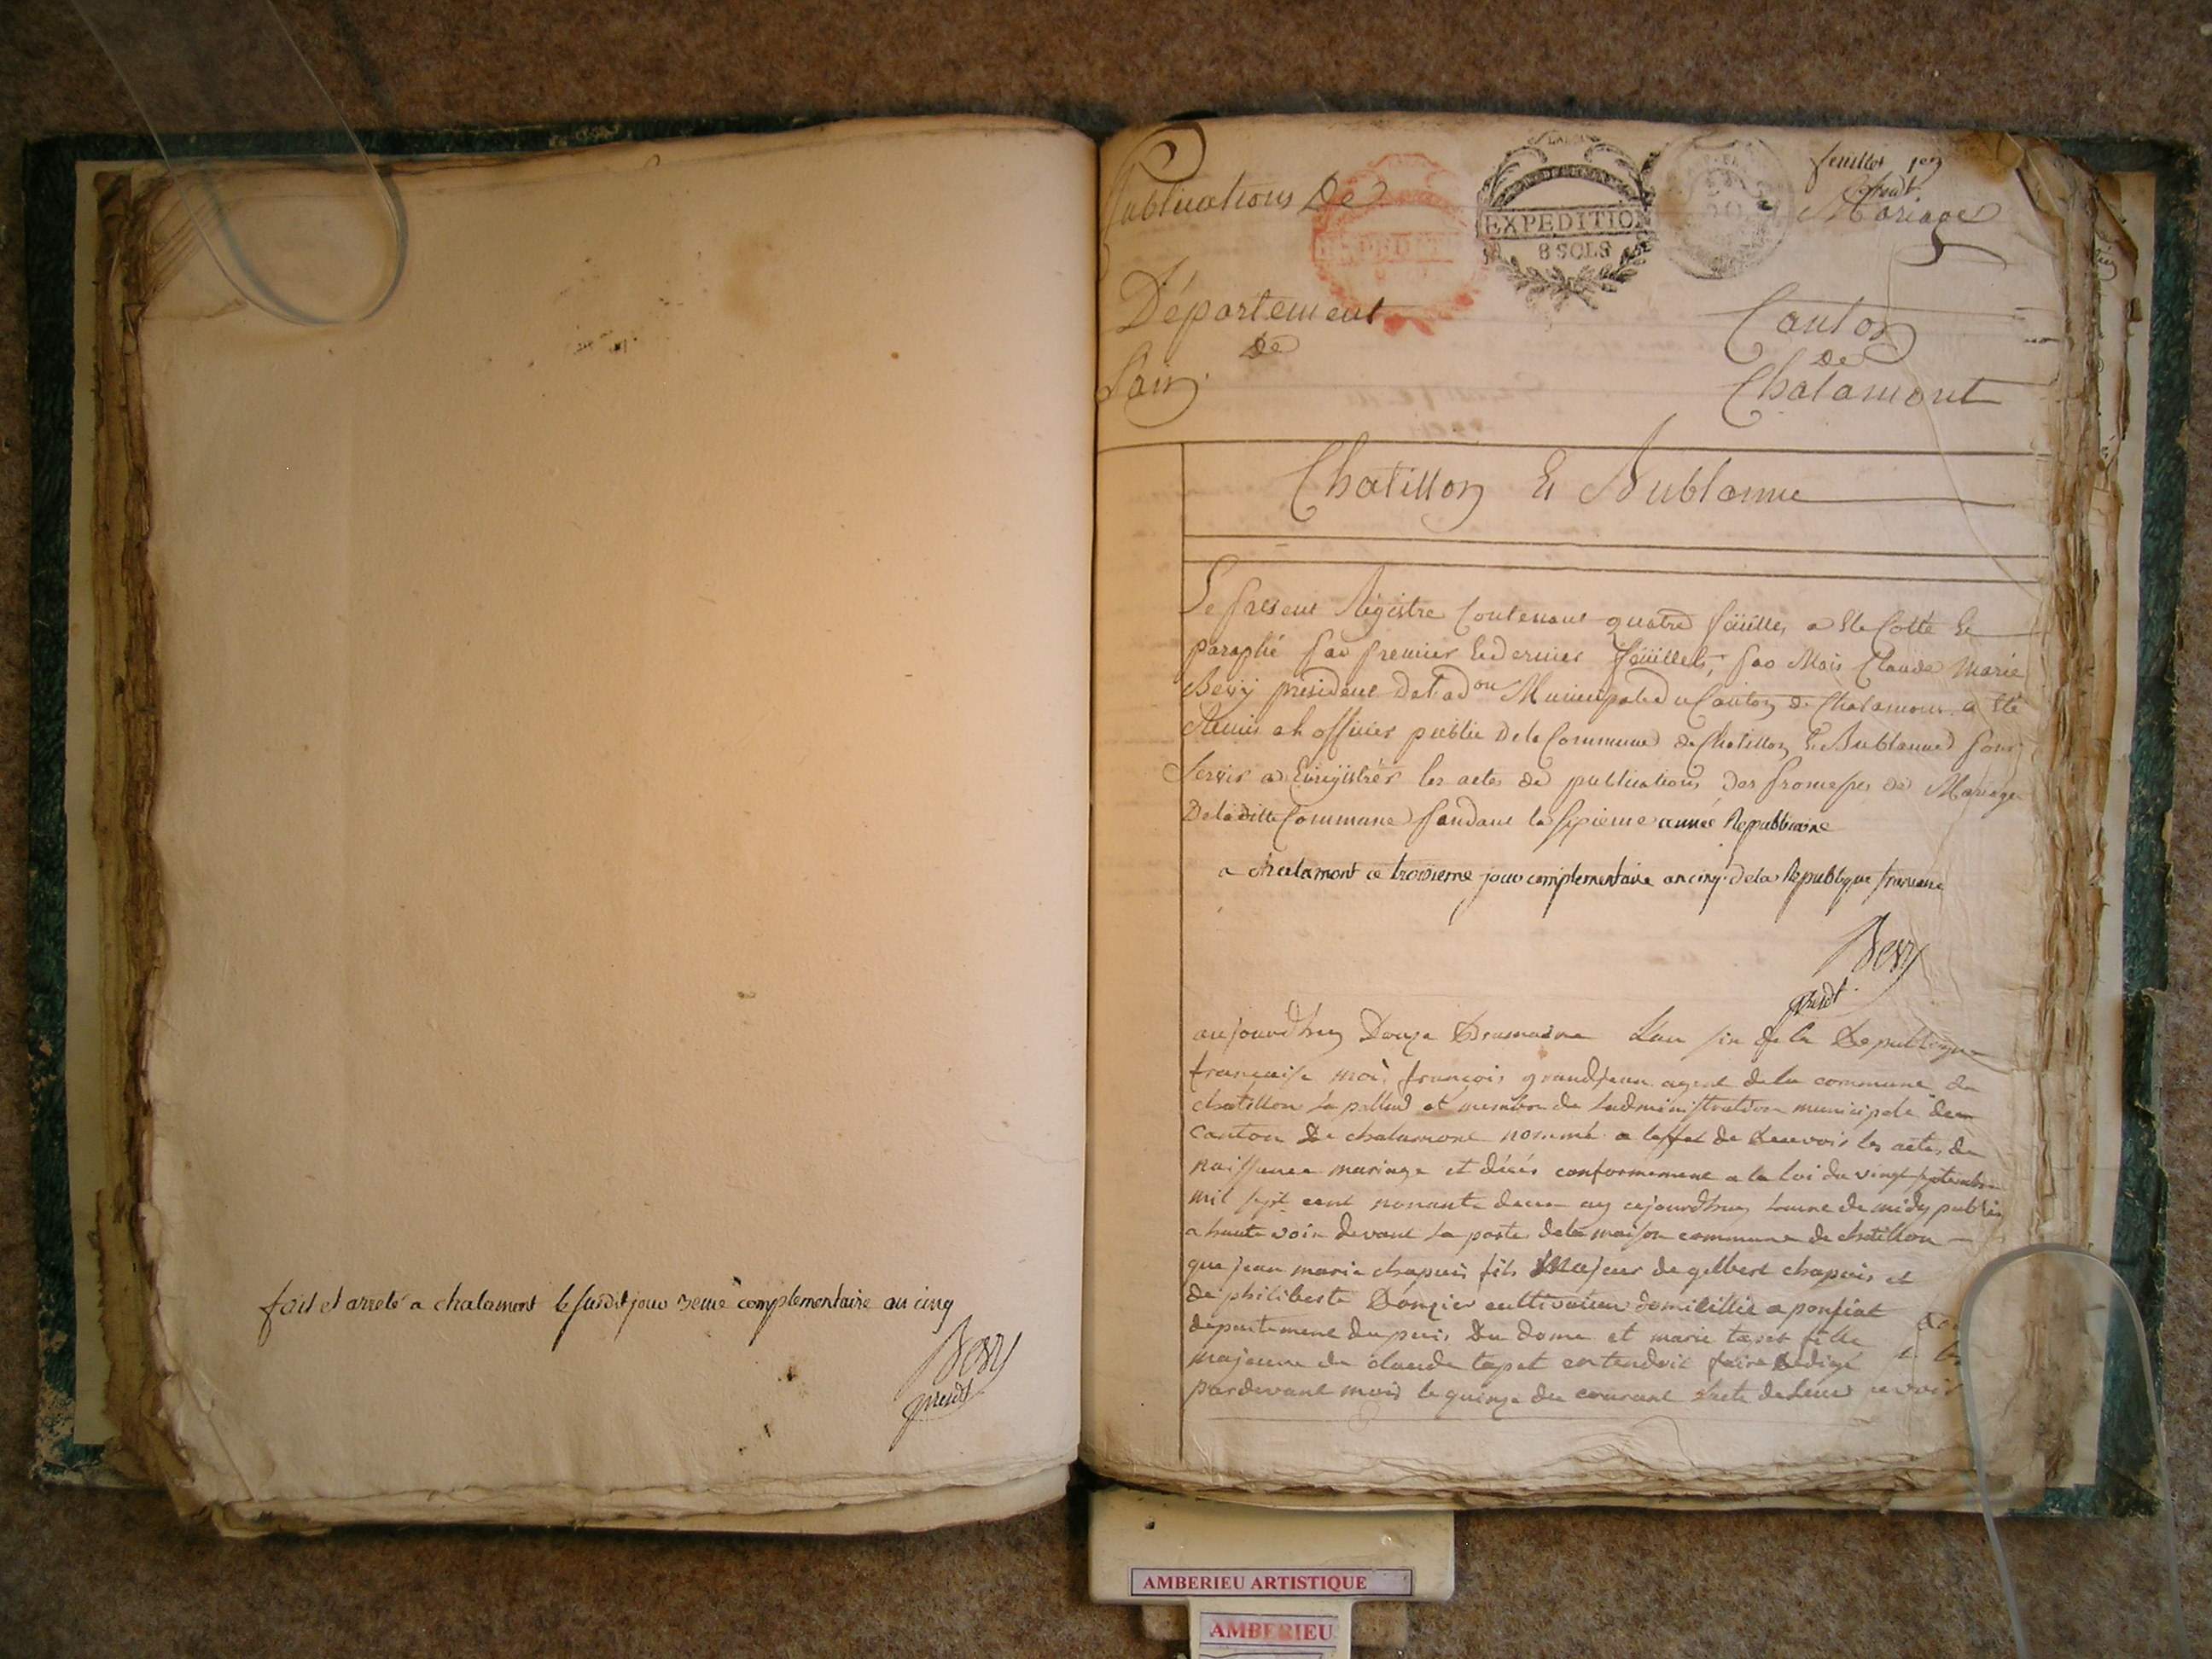 fait et arreté a chalamont le susdit jour 3eme complementaire an cinq
Bevy
presdt
Publications De
EXPEDITION
8 SOLS
feuillet 1er
Mariage
Département
De
Lain
Canton
de
Chalamont
Chatillon Et Bublanne
Le present Régistre Contenant quatre feüilles a Ete Cotté Et
paraphé par premier Et dernier feüillets, par Moi Claude Marie
Bevy president De l'adon Municipale du Canton de Chalamont a Eté
Remis a l'officier public De la Commune de Chatillon Et Bublanne pour
Servir a Enrégistrér les actes de publications Des promesses de Mariage
De la ditte Commune pendant la sixieme année Republicaine
a chalamont ce troisieme jour complementaire an cinq de la Republique francaise
Bevy
presdt
aujourdhuy Douze Brumaire Lan six de la Republique
francaise moi françois grandjean agent de la commune de
chatillon la pallud et membre de ladministration municipale de
canton De chalamont nommé a leffet de Recevoir les actes de
naissance mariage et décés conformement a la loi du vingt septembre
mil sept cent nonante deux ay cejourdhuy heure de midy publié
a haute voix devant la porte de la maison commune de chatillon
que jean marie chapuis fils Majeur de gilbert chapuis et
de philiberte Donzier cultivateur domicillié a ponsiat
departement du puis Du dome et marie tapet fille
majeure de claude tapet entendoit faire Redigé
pardevant moi le quinze du courant lacte de leur
AMBERIEU ARTISTIQUE
AMBERIEU